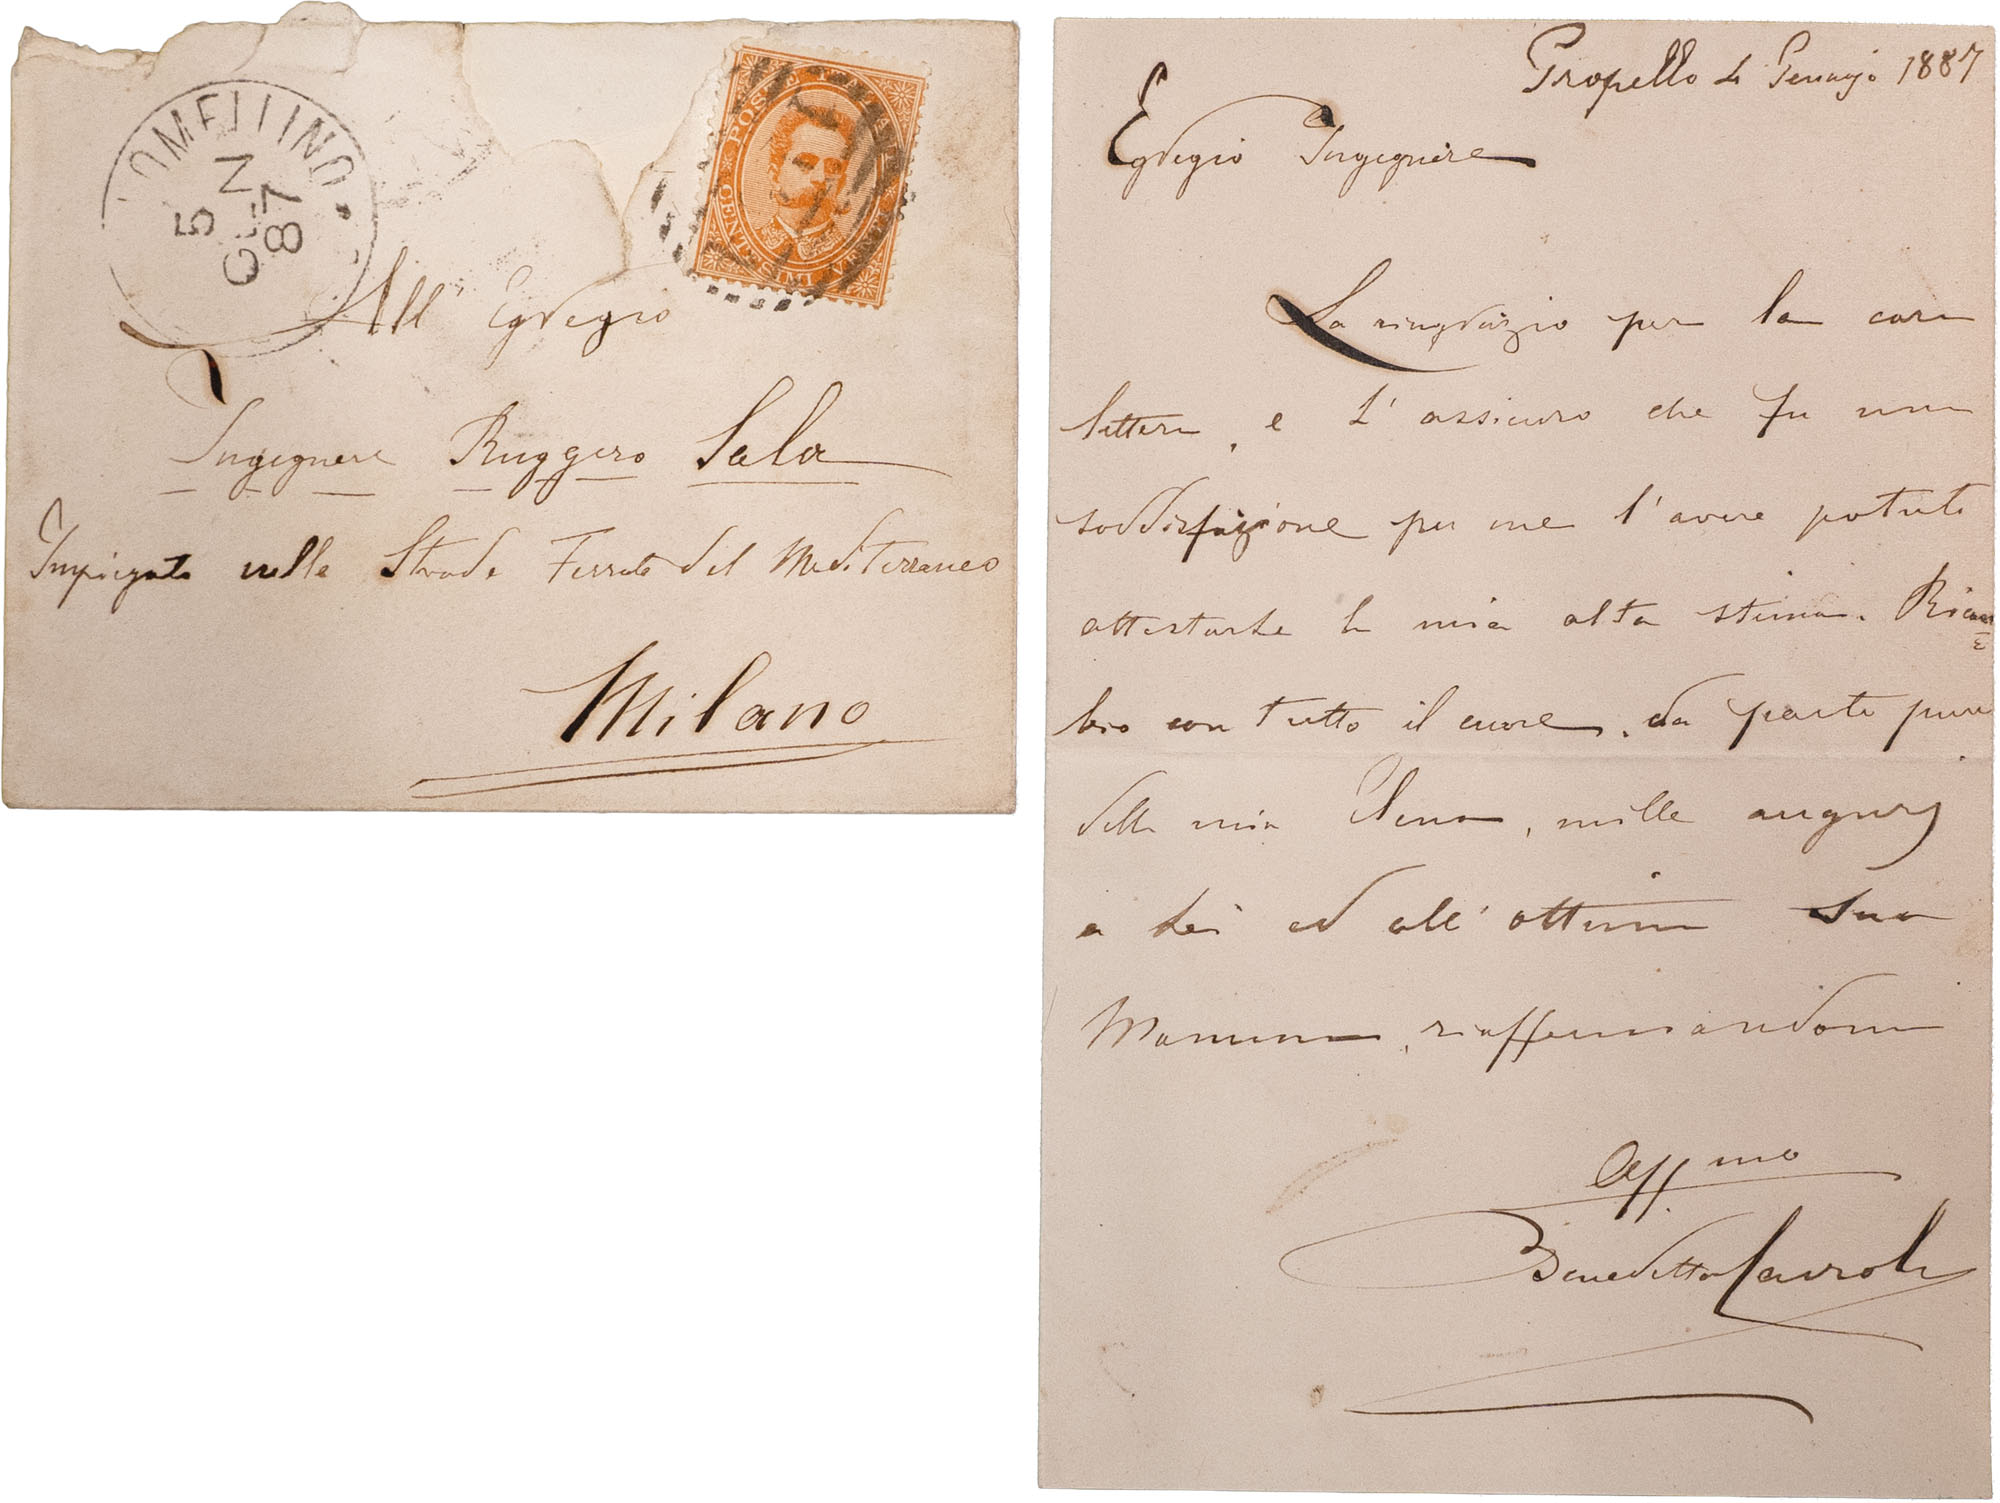 LOMELLINO
5
GEN
87
POSTE ITALIANE
VENTI CENTESIMI
All' Egregio
Ingegnere Ruggero Sala
Impiegato nelle Strade Ferrate del Mediterraneo
Milano
Gropello 4 Gennajo 1887
Egregio Ingegnere
La ringrazio per la cara
lettera, e L'assicuro che fu una
soddisfazione per me l'avere potuto
attestarle la mia alta stima. Ricam
bio con tutto il cuore, da parte pure
della mia Elena, mille augurj
a Lei ed all'ottima Sua
Mamma, riaffermandomi
Aff.mo
Benedetto Cairoli